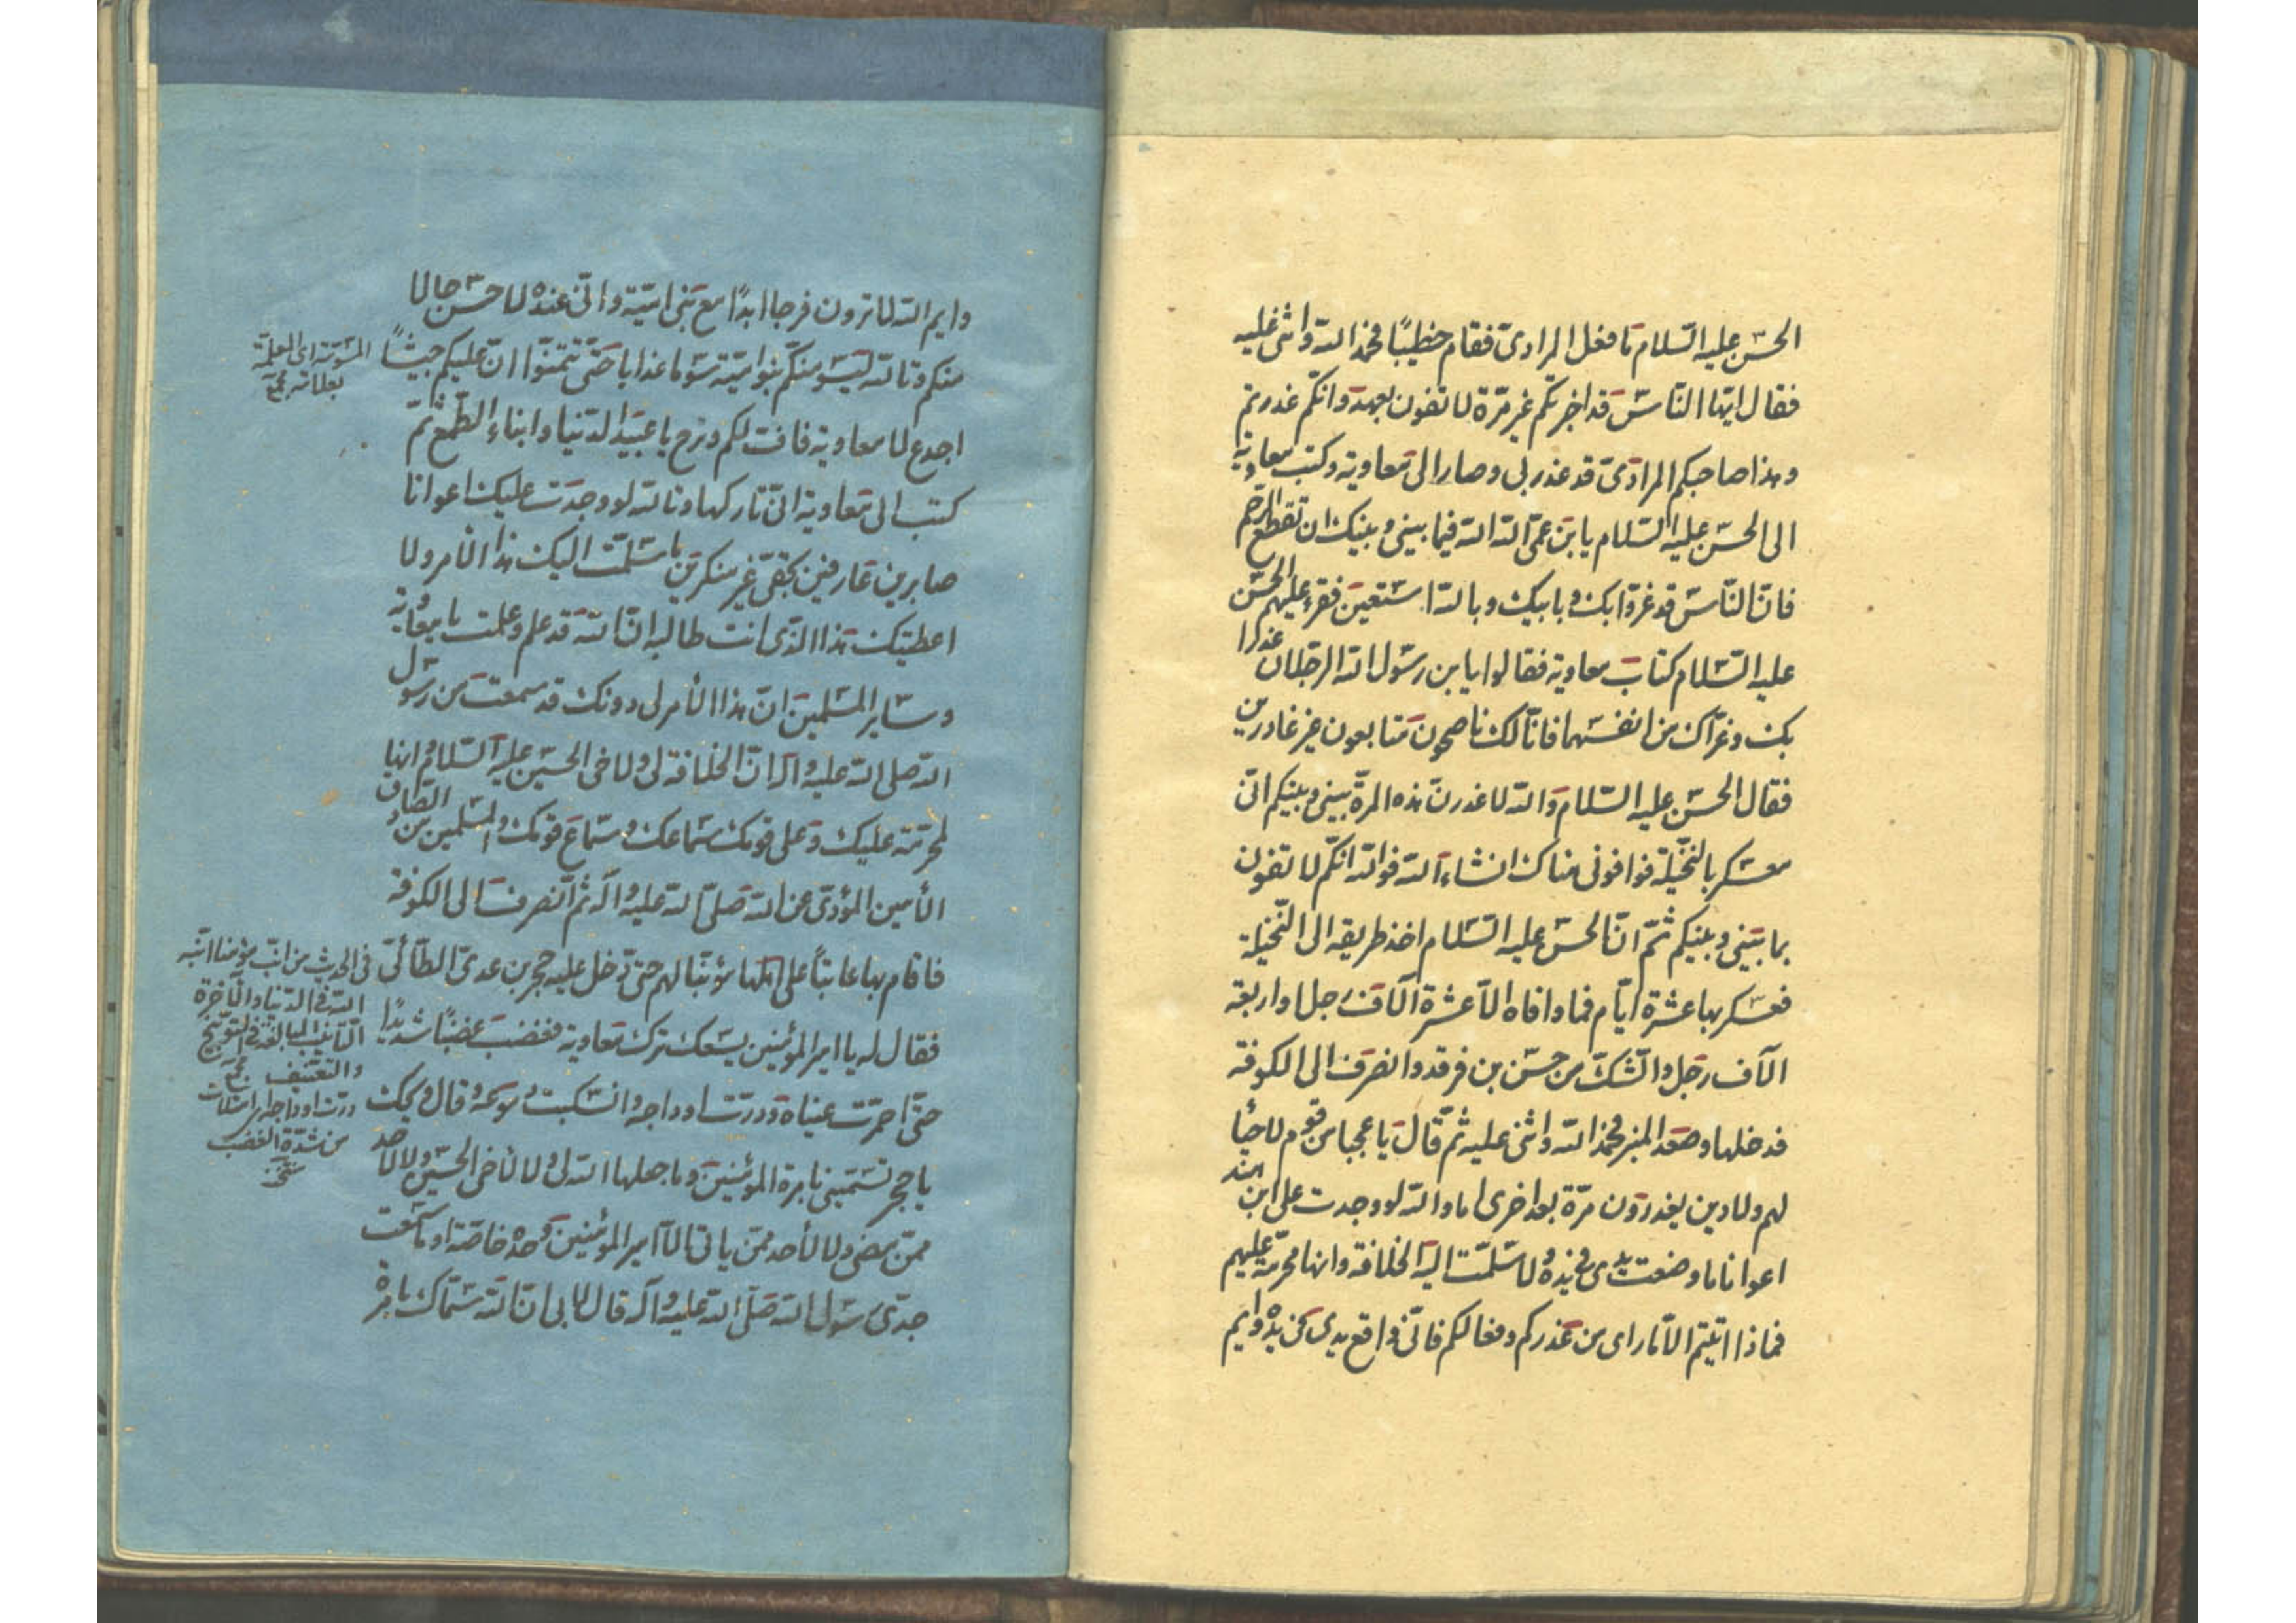 الحسن عليه السلام ما فعل المرادي فقام خطيبًا فحمد الله واثنى عليه
فقال ايها الناس قد اخبرتكم غير مرّة لا تفون بعهد وانكم غدرتم
وهذا صاحبكم المرادى قد غدر بى وصار الى معاوية وكتب معاوية
الى الحسن عليه السلام يا بن عمّ الله الله فيما بينى وبينك ان تقطع الرحم
فانّ الناس قد غرّوا بك وبابيك وبالله استعين فقرء عليهم الحسن
عليه السلام كتاب معاوية فقالوا يا بن رسول الله الرجلان غدرا
بك وغرّاك من انفسهما فانّا لك ناصحون متابعون غير غادرين
فقال الحسن عليه السلام والله لاغدرن هذه المرة بينى وبينكم انّى
معسكر بالنخيلة فوافونى هناك انشاء الله فوالله انكم لا تفون
بما بينى وبينكم ثمّ انّ الحسن عليه السلام اخذ طريقه الى النخيلة
فعسكر بها عشرة ايّام فما وافاه الّا عشرة آلاف رجل او اربعة
آلاف رجل والشكّ من حسن بن فرقد وانصرف الى الكوفة
فدخلها وصعد المنبر فحمد الله واثنى عليه ثمّ قال يا عجبا من قوم لا حيأ
لهم ولا دين يغدرون مرّة بعد اخرى اما والله لو وجدت على ابن هند
اعوانا ما وضعت يدى فى يده ولا سلّمت اليه الخلافة وانها محرمة عليهم
فماذا اتيتم الّا ما ارى من غدركم وفعالكم فانّى واضع يدى فى يده وايم
وايم الله لا ترون فرجا ابدًا مع بنى اميّة وانّى عنده لاحسن حالا
منكم وتالله ليسومنكم بنو اميّة سوما عذابا حتى تتمنّوا انّ عليكم جيشًا
المسومة اى المعلمة
بعلامة
اجدع لا معاوية فافّ لكم وترح يا عبيد الدنيا وابناء الطمع ثمّ
كتب الى معاوية انّى تاركها وتالله لو وجدت عليك اعوانا
صابرين عارفين بحقّى غير منكرين ما سلّمت اليك هذا الأمر ولا
اعطيتك هذا الذى انت طالبه انّ الله قد علم وعلمت يا معاوية
وساير المسلمين انّ هذا الأمر لى دونك قد سمعت من رسول
الله صلى الله عليه وآله انّ الخلافة لى ولاخى الحسين عليه السلام وانها
لمحرّمة عليك وعلى قومك سماعك وسماع قومك والمسلمين من الصادق
الأمين المؤدى عن الله صلّى الله عليه وآله ثمّ انصرف الى الكوفة
فاقام بها عاتبًا على اهلها مؤنّبا لهم حتى دخل عليه حجر بن عدى الطائى
فى الحديث من انّب مؤمنا انّبه
الله فى الدنيا والآخرة
التأنيب المبالغة فى التوبيخ
والتعنيف
فقال له يا امير المؤمنين يسعك ترك معاوية فغضب غضبًا شديدًا
حتى احمرّت عيناه ودرّت اوداجه وانسكبت دموعه وقال ويحك
درّت اوداجه اى امتلات
من شدّة الغضب
يا حجر تسمّينى بامرة المؤمنين وما جعلها الله لى ولا لأخى الحسين ولا لأحد
ممّن مضى ولا لأحد ممّن ياتى الّا امير المؤمنين وحده خاصّة او ما سمعت
جدّى رسول الله صلّى الله عليه وآله قال لابى انّ الله سمّاك بامرة